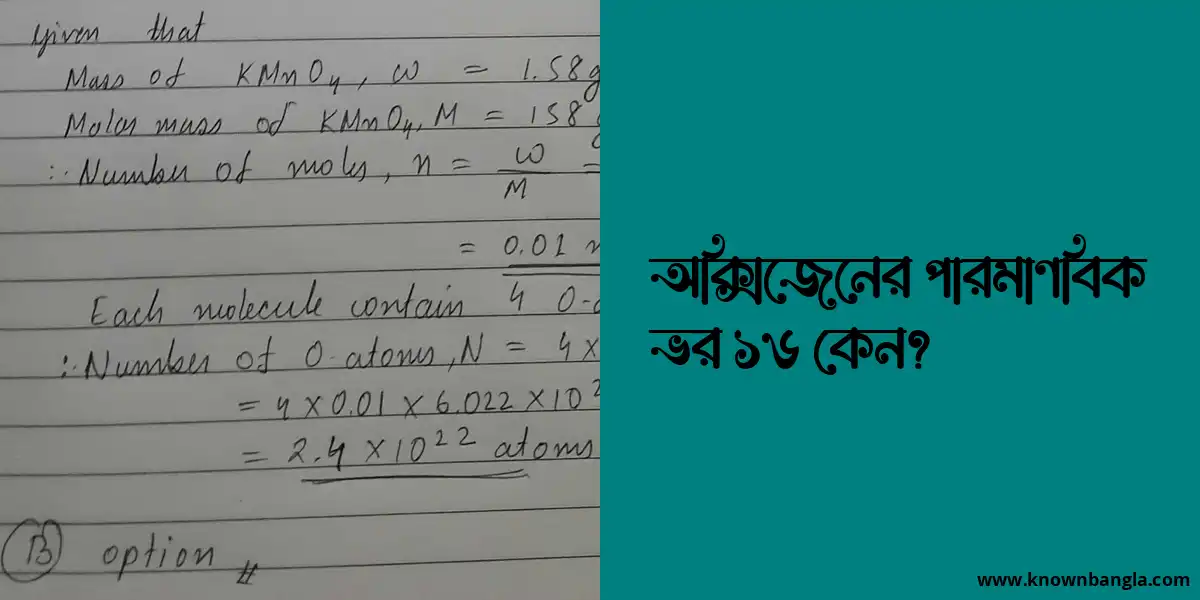 Given that
Mass of KMnO4, w = 1.58g
Molar mass of KMnO4, M = 158
∴ Number of moles, n = w/M =
= 0.01
Each molecule contain 4 O-
∴ Number of O-atoms, N = 4×
= 4 × 0.01 × 6.022 × 10²
= 2.4 × 10²² atoms
(B) option
অক্সিজেনের পারমাণবিক
ভর ১৬ কেন?
www.knownbangla.com